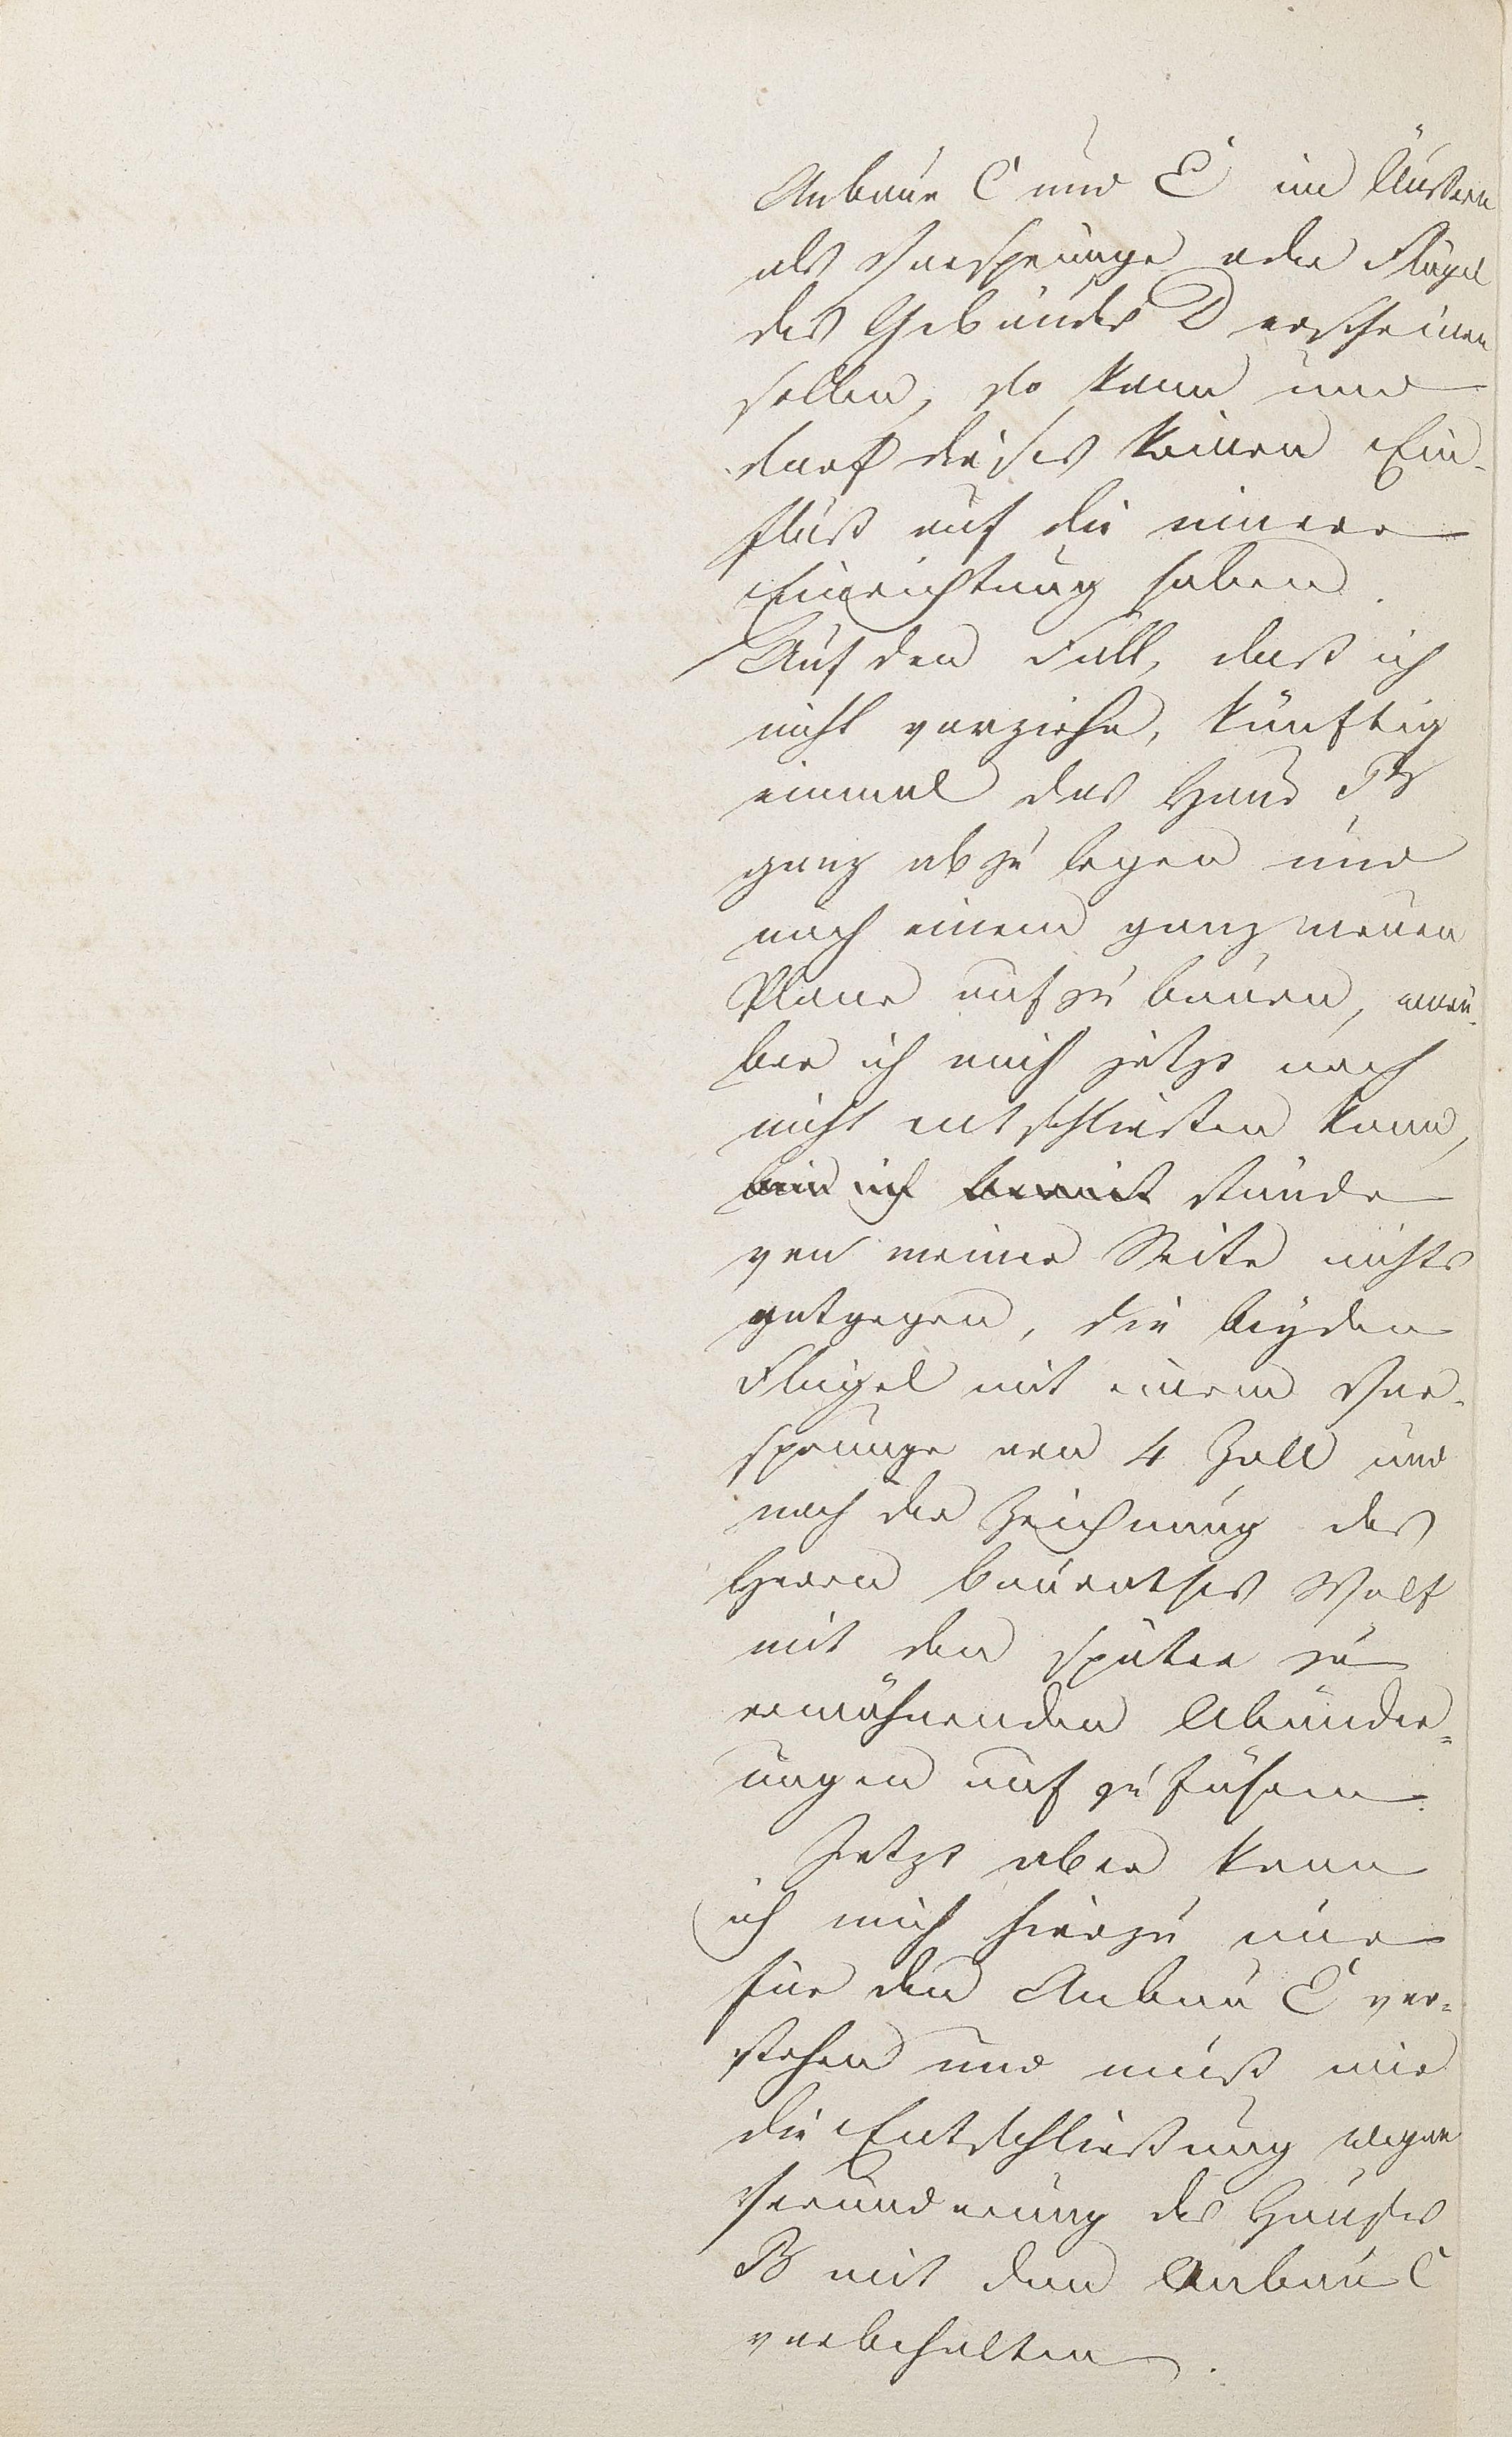 Anbaue C und E im Äußern
als Vorsprünge oder Flügel
des Gebäudes D erscheinen
sollen, so kann und
darf dieses keinen Ein-
fluß auf die innere
Einrichtung haben.
Auf den Fall, daß ich
nicht vorziehe, künftig
einmal das Haus B
ganz abzulegen und
nach einem ganz neuen
Plane aufzubauen, worü-
ber ich mich jetzt noch
nicht entschließen kann,
bin ich bereit stände
von meiner Seite nichts
entgegen, die beyden
Flügel mit einem Vor-
sprunge von 4 Zoll und
nach der Zeichnung des
Herrn Bauraths Wolf
mit den später zu
erwähnenden Abänder-
ungen aufzuführen.
Jetzt aber kann
ich mich hierzu nur
für den Anbau E ver-
stehen und muß mir
die Entschließung wegen
Veränderung des Hauses
B mit dem Anbau C
vorbehalten.